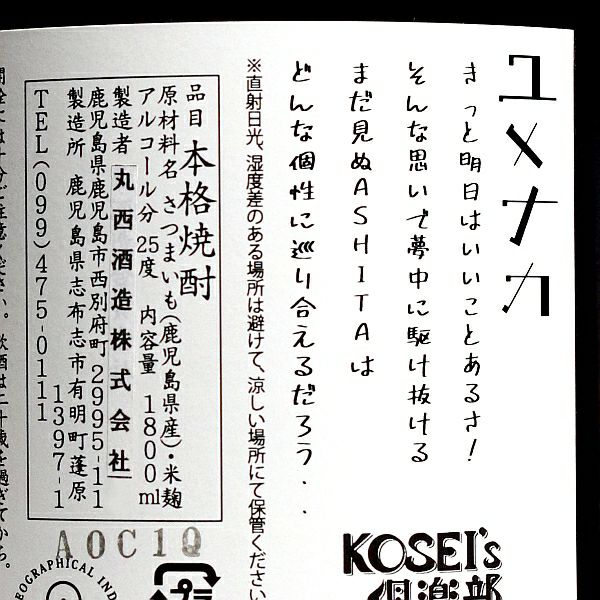 ユメナカ
きっと明日はいいことあるさ!
そんな思いで夢中に駆け抜ける
まだ見ぬASHITAは
どんな個性に巡り合えるだろう・・
※直射日光、湿度差のある場所は避けて、涼しい場所にて保管ください
品目 本格焼酎
原材料名 さつまいも(鹿児島県産)・米麹
アルコール分 25度 内容量 1800ml
製造者 丸西酒造株式会社
鹿児島県鹿児島市西別府町2995-11
製造所 鹿児島県志布志市有明町蓬原1397-1
TEL(099)475-0111
KOSEI's
倶楽部
AOC1Q
プラ